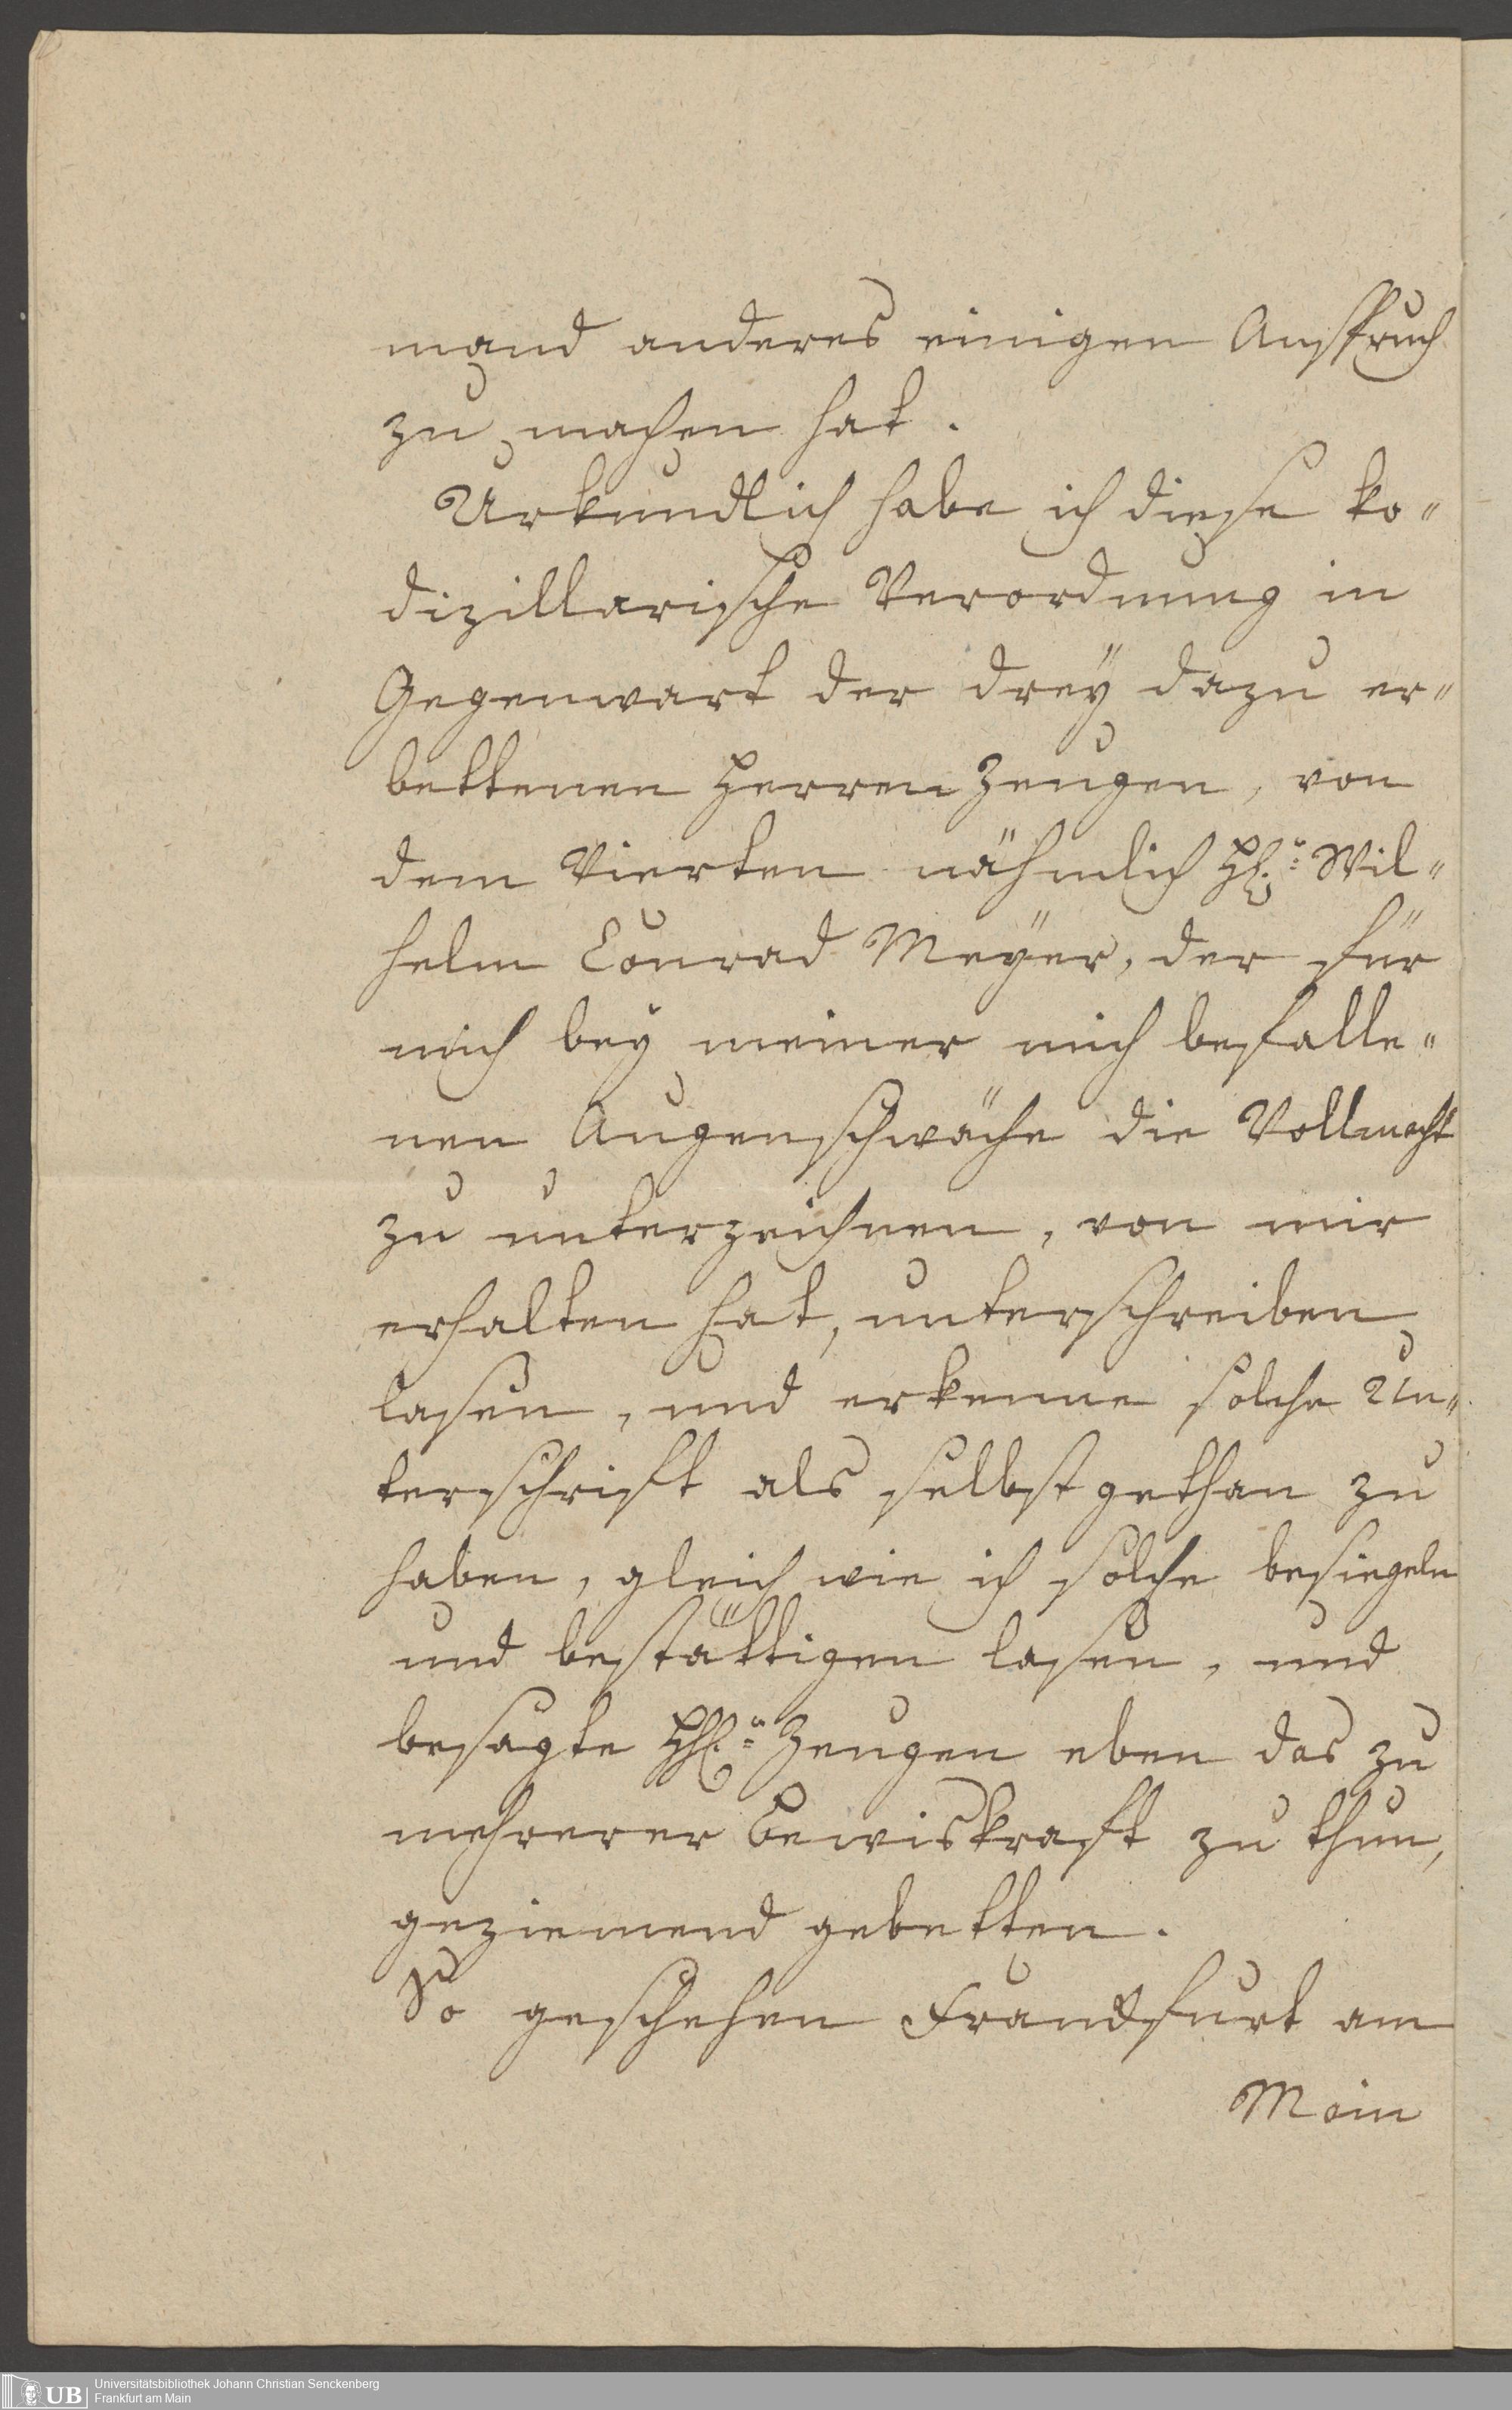 mand anderes einigen Anspruch
zu machen hat.
Urkundlich habe ich diese ko„
dizillarische Verordnung in
Gegenwart der dreÿ dazu er„
bettenen Herren Zeugen, von
dem Vierten nähmlich H. Wil„
helm Conrad Meÿer, der für
mich beÿ meiner mich befalle„
nen Augenschwäche die Vollmacht
zu unterzeichnen, von mir
erhalten hat, unterschreiben
lasen, und erkenne solche Un„
terschrift als selbst gethan zu
haben, gleich wie ich solche besiegeln
und bestättigen lasen, und
besagte HH. Zeugen eben das zu
mehrerer Bewiskraft zu thun,
geziemend gebetten.
So geschehen Franckfurt am
Main
UB Universitätsbibliothek Johann Christian Senckenberg
Frankfurt am Main